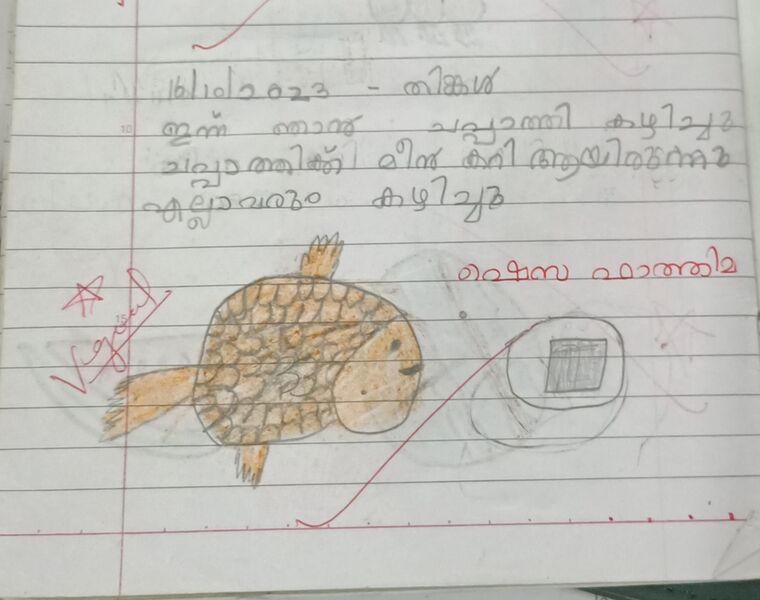 16/10/2023 - തിങ്കൾ
ഇന്ന് ഞാൻ ചപ്പാത്തി കഴിച്ചു
ചപ്പാത്തിക്ക് മീൻ കറി ആയിരുന്നു
എല്ലാവരും കഴിച്ചു
ഫാത്തിമ